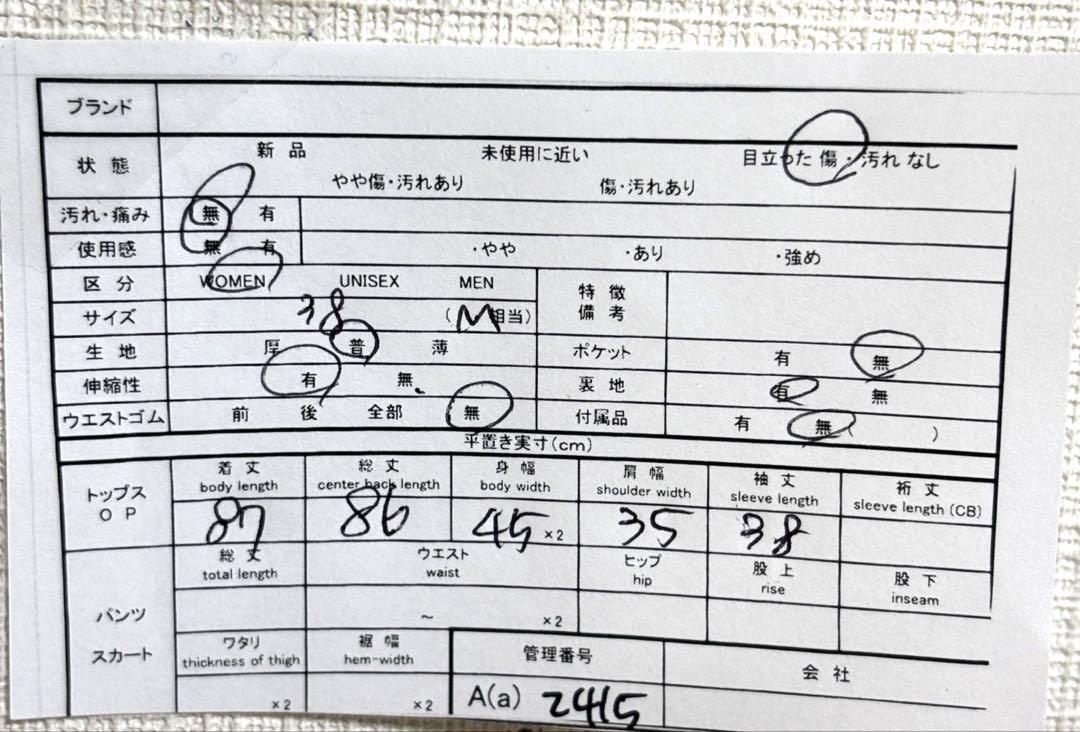 ブランド
状態 新品 未使用に近い 目立った傷・汚れなし
やや傷・汚れあり 傷・汚れあり
汚れ・痛み 無 有
使用感 無 有 ・やや ・あり ・強め
区分 WOMEN UNISEX MEN 特徴
備考
サイズ 38 (M相当)
生地 厚 普 薄 ポケット 有 無
伸縮性 有 無 裏地 有 無
ウエストゴム 前 後 全部 無 付属品 有 無( )
平置き実寸(cm)
トップス
OP
着丈 総丈 身幅 肩幅 袖丈 裄丈
body length center back length body width shoulder width sleeve length sleeve length (CB)
87 86 45 ×2 35 38
パンツ
スカート
総丈 ウエスト ヒップ 股上 股下
total length waist hip rise inseam
~ ×2
ワタリ 裾幅 管理番号 会社
thickness of thigh hem-width
×2 ×2 A(a) 2415